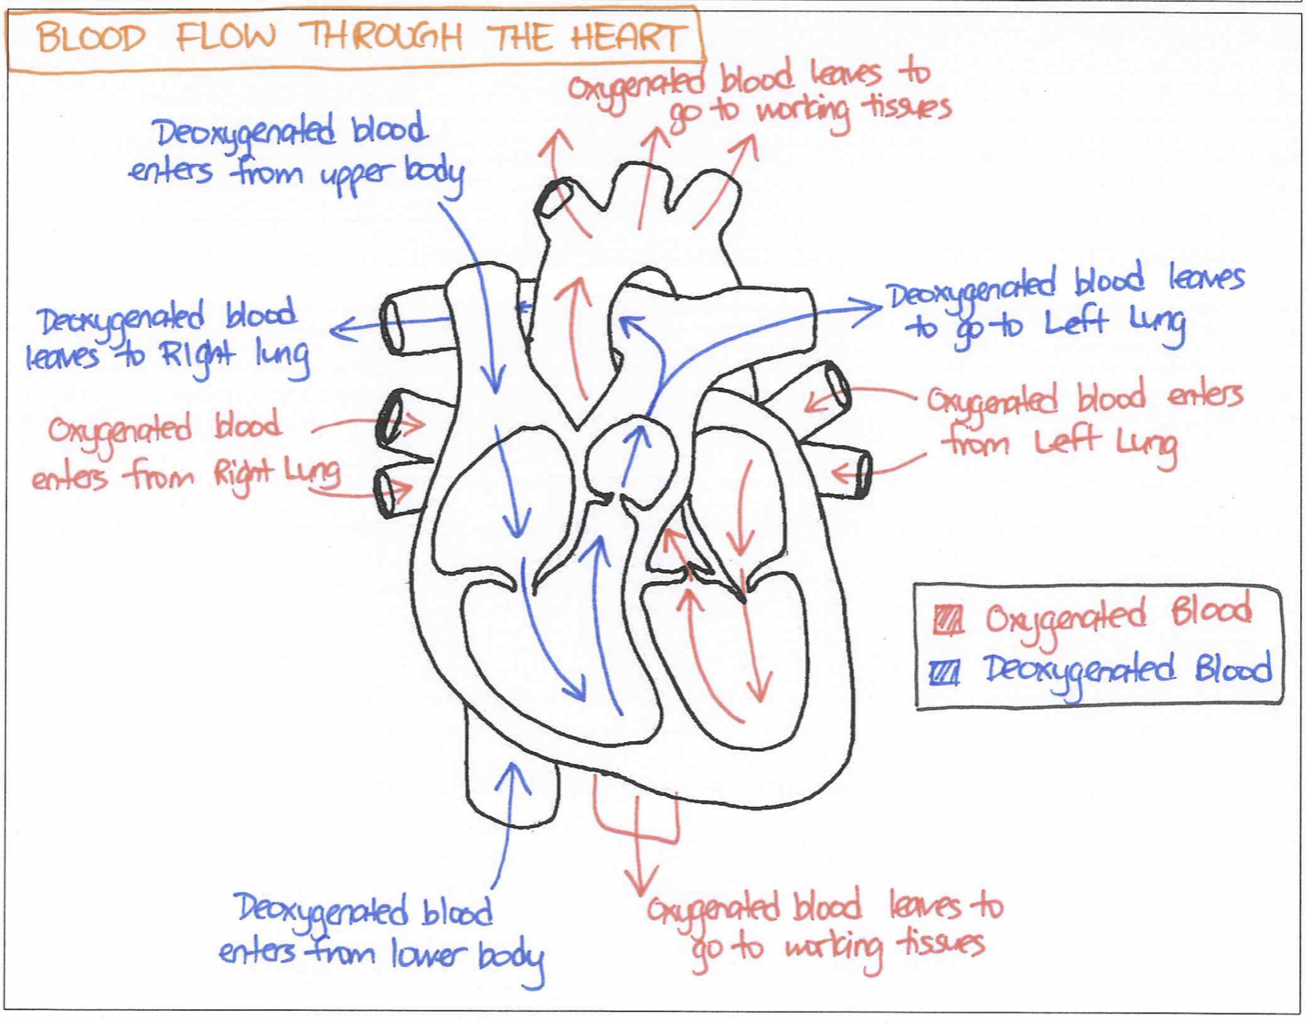 BLOOD FLOW THROUGH THE HEART
Oxygenated blood leaves to
go to working tissues
Deoxygenated blood
enters from upper body
Deoxygenated blood leaves
to go to Left Lung
Deoxygenated blood
leaves to Right lung
Oxygenated blood enters
from Left Lung
Oxygenated blood
enters from Right Lung
Oxygenated Blood
Deoxygenated Blood
Deoxygenated blood
enters from lower body
Oxygenated blood leaves to
go to working tissues